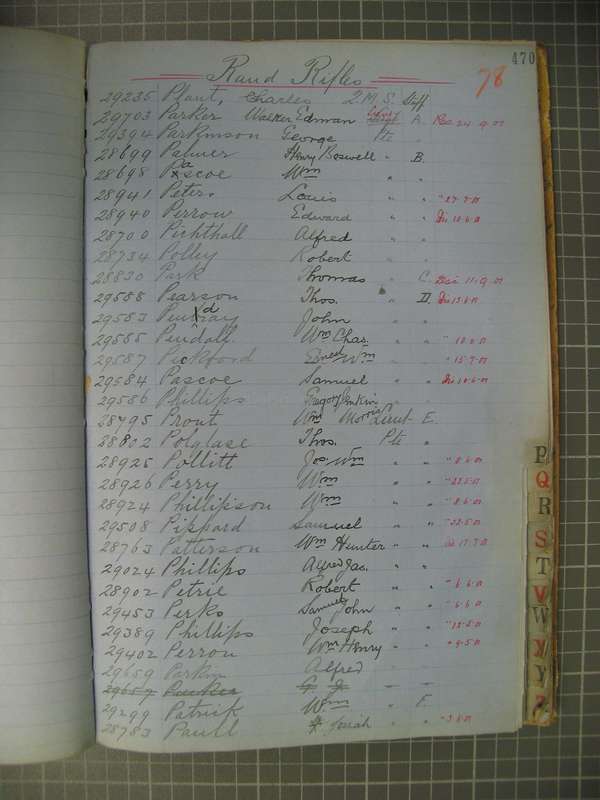 470
Rand Rifles 78
29235 Plant, Charles Q.M.S. Staff
29703 Parker Walker Edman A.
29394 Parkinson George Pte "
28699 Palmer Henry Boswell " B.
28698 Pascoe Wm " "
28941 Peters Louis " " " 27.7.01
28940 Perrow Edward " " 10.6.01
28700 Pichthall Alfred " "
28734 Polley Robert " "
28830 Park Thomas " C. 11.9.01
29588 Pearson Thos. " D. 15.6.01
29583 John " "
29585 Pendall Wm Chas. " "
29587 Pickford Ernest Wm " " " 15.7.01
29584 Pascoe Samuel " " 10.6.01
29586 Phillips Gregory Jenkin " "
28795 Prout Wm Morris Lieut E.
28802 Polglase Thos. Pte "
28925 Pollitt Jos. Wm " " " 8.6.01
28926 Perry Wm " "
28924 Phillipson Wm " " " 8.6.01
29508 Pippard Samuel " "
28763 Patterson Wm Hunter " " 17.7.01
29024 Phillips Alfred Jas. " "
28902 Petrie Robert " " " 6.6.01
29453 Perks Samuel John " " " 6.6.01
29389 Phillips Joseph " "
29402 Perrow Wm Henry " "
29659 Parkin Alfred
29657
29299 Patrick Wm " F.
28783 Paull Josiah " "
P
Q
R
S
T
V
W
Y
Z